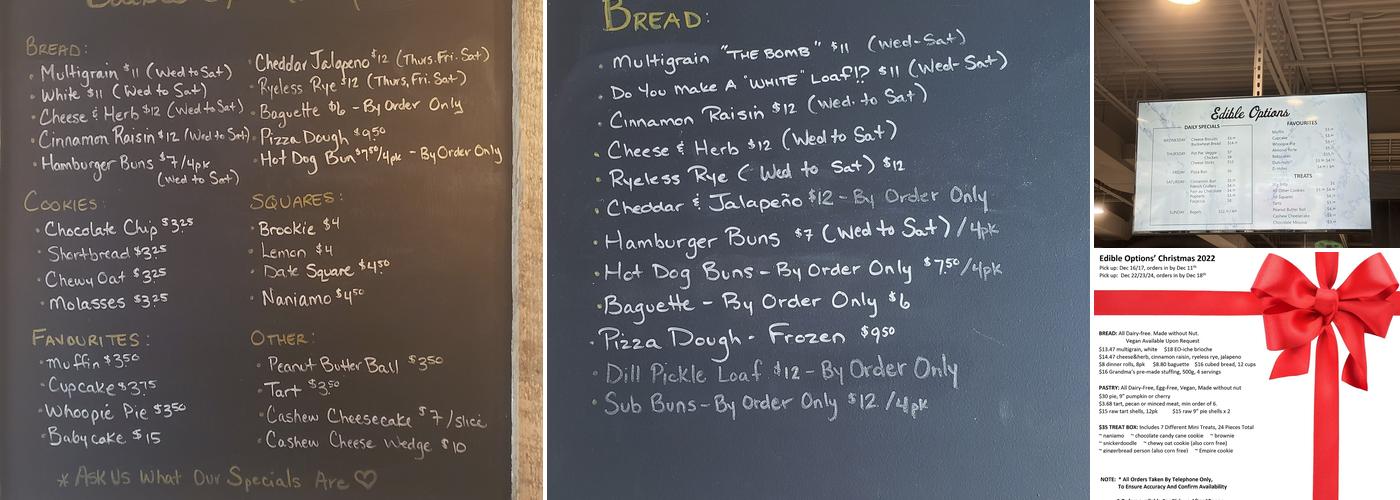 BREAD:
• Multigrain $11 (Wed to Sat)
• White $11 (Wed to Sat)
• Cheese & Herb $12 (Wed to Sat)
• Cinnamon Raisin $12 (Wed to Sat)
• Hamburger Buns $7/4pk
(Wed to Sat)
• Cheddar Jalapeno $12 (Thurs. Fri. Sat)
• Ryeless Rye $12 (Thurs, Fri, Sat)
• Baguette $6 - By Order Only
• Pizza Dough $9.50
• Hot Dog Bun $7.50/4pk - By Order Only
COOKIES:
• Chocolate Chip $3.25
• Shortbread $3.25
• Chewy Oat $3.25
• Molasses $3.25
SQUARES:
• Brookie $4
• Lemon $4
• Date Square $4.50
• Naniamo $4.50
FAVOURITES:
• Muffin $3.50
• Cupcake $3.75
• Whoopie Pie $3.50
• Babycake $15
OTHER:
• Peanut Butter Ball $3.50
• Tart $3.50
• Cashew Cheesecake $7/slice
• Cashew Cheese Wedge $10
* Ask Us What Our Specials Are ♡
BREAD:
• Multigrain "THE BOMB" $11 (Wed-Sat)
• Do You Make A "WHITE" Loaf!? $11 (Wed-Sat)
• Cinnamon Raisin $12 (Wed. to Sat)
• Cheese & Herb $12 (Wed to Sat)
• Ryeless Rye (Wed to Sat) $12
• Cheddar & Jalapeño $12 - By Order Only
• Hamburger Buns $7 (Wed to Sat)/4pk
• Hot Dog Buns - By Order Only $7.50/4pk
• Baguette - By Order Only $6
• Pizza Dough - Frozen $9.50
• Dill Pickle Loaf $12 - By Order Only
• Sub Buns - By Order Only $12/4pk
Edible Options
DAILY SPECIALS
WEDNESDAY
Cheese Biscuits
Buckwheat Bread
THURSDAY
Pot Pie: Veggie
Chicken
Cheese Sticks
FRIDAY
Pizza Bun
SATURDAY
Cinnamon Bun
SUNDAY
Bagels
FAVOURITES
Muffin
Cupcake
Whoopie Pie
Babycakes
TREATS
All Other Cookies
All Squares
Tarts
Peanut Butter Ball
Cashew Cheesecake
Chocolate Mousse
Edible Options' Christmas 2022
Pick up: Dec 16/17, orders in by Dec 11th
Pick up: Dec 22/23/24, orders in by Dec 18th
BREAD: All Dairy-free. Made without Nut.
Vegan Available Upon Request
$13.47 multigrain, white $18 EO-iche brioche
$14.47 cheese&herb, cinnamon raisin, ryeless rye, jalapeno
$8 dinner rolls, 8pk $8.80 baguette $16 cubed bread, 12 cups
$16 Grandma's pre-made stuffing, 500g, 4 servings
PASTRY: All Dairy-Free, Egg-Free, Vegan, Made without nut
$30 pie, 9" pumpkin or cherry
$3.68 tart, pecan or minced meat, min order of 6.
$15 raw tart shells, 12pk $15 raw 9" pie shells x 2
$35 TREAT BOX: Includes 7 Different Mini Treats, 24 Pieces Total
~ naniamo ~ chocolate candy cane cookie ~ brownie
~ snickerdoodle ~ chewy oat cookie (also corn free)
~ gingerbread person (also corn free) ~ Empire cookie
NOTE: * All Orders Taken By Telephone Only,
To Ensure Accuracy And Confirm Availability